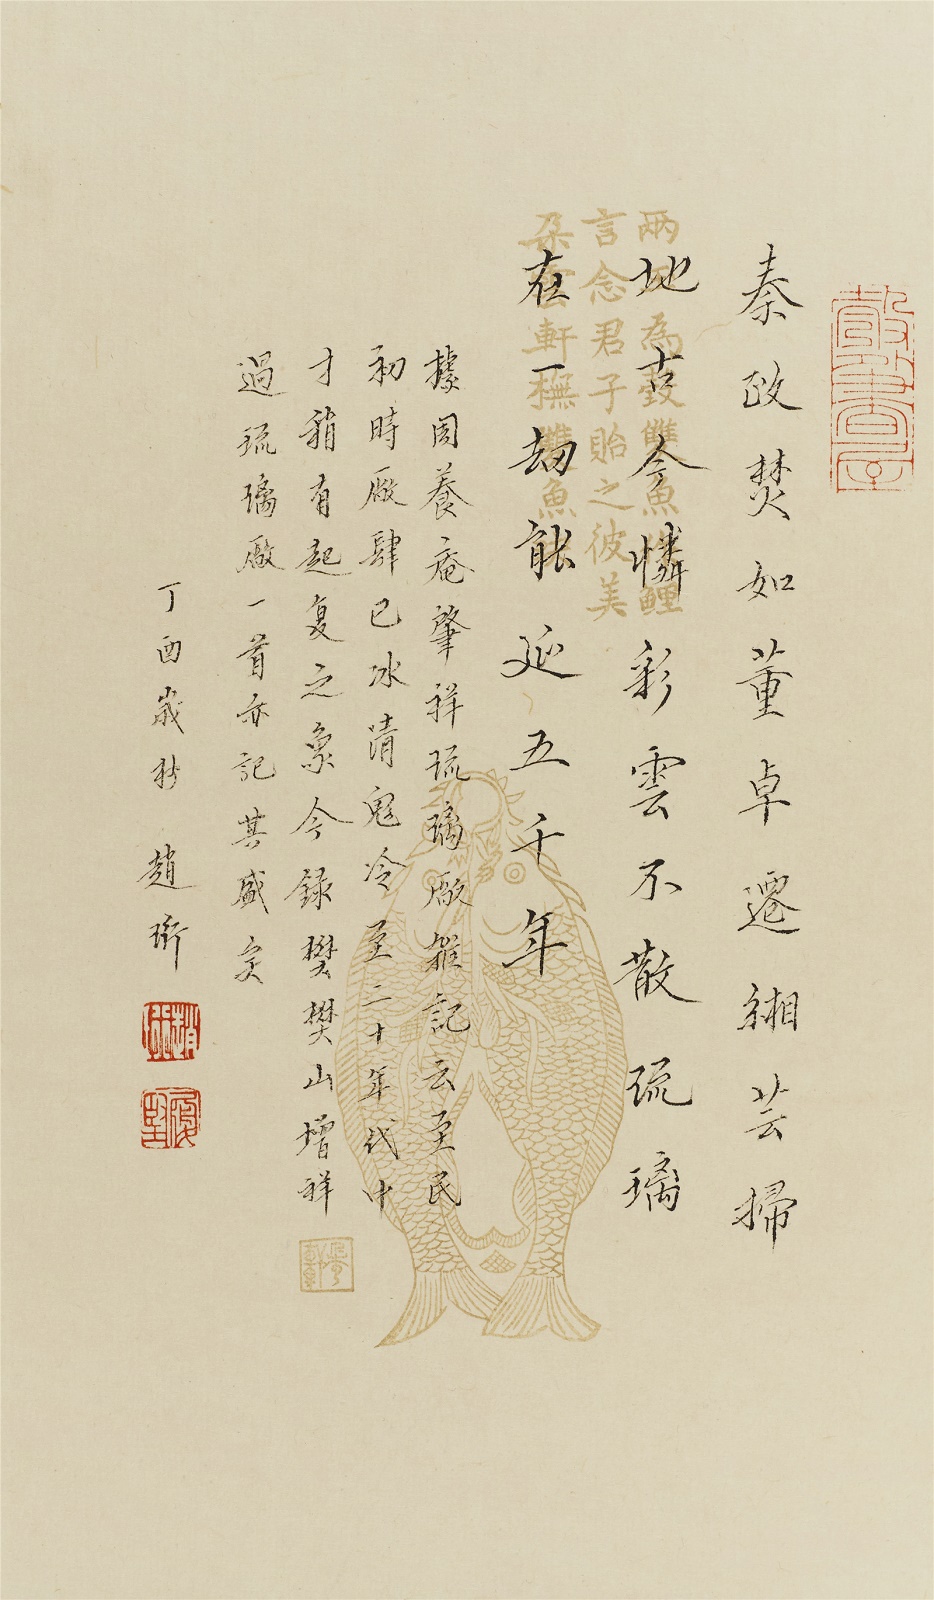 秦政焚如董卓遷緗芸掃
地古今憐彩雲不散琉璃
在一劫能延五千年
據周養庵肇祥琉璃廠雜記云至民
初時廠肆已冰清鬼冷至二十年代中
才稍有起復之象今錄樊樊山增祥
過琉璃廠一首亦記其盛矣
丁酉歲杪 趙珩
言念君子貽之彼美